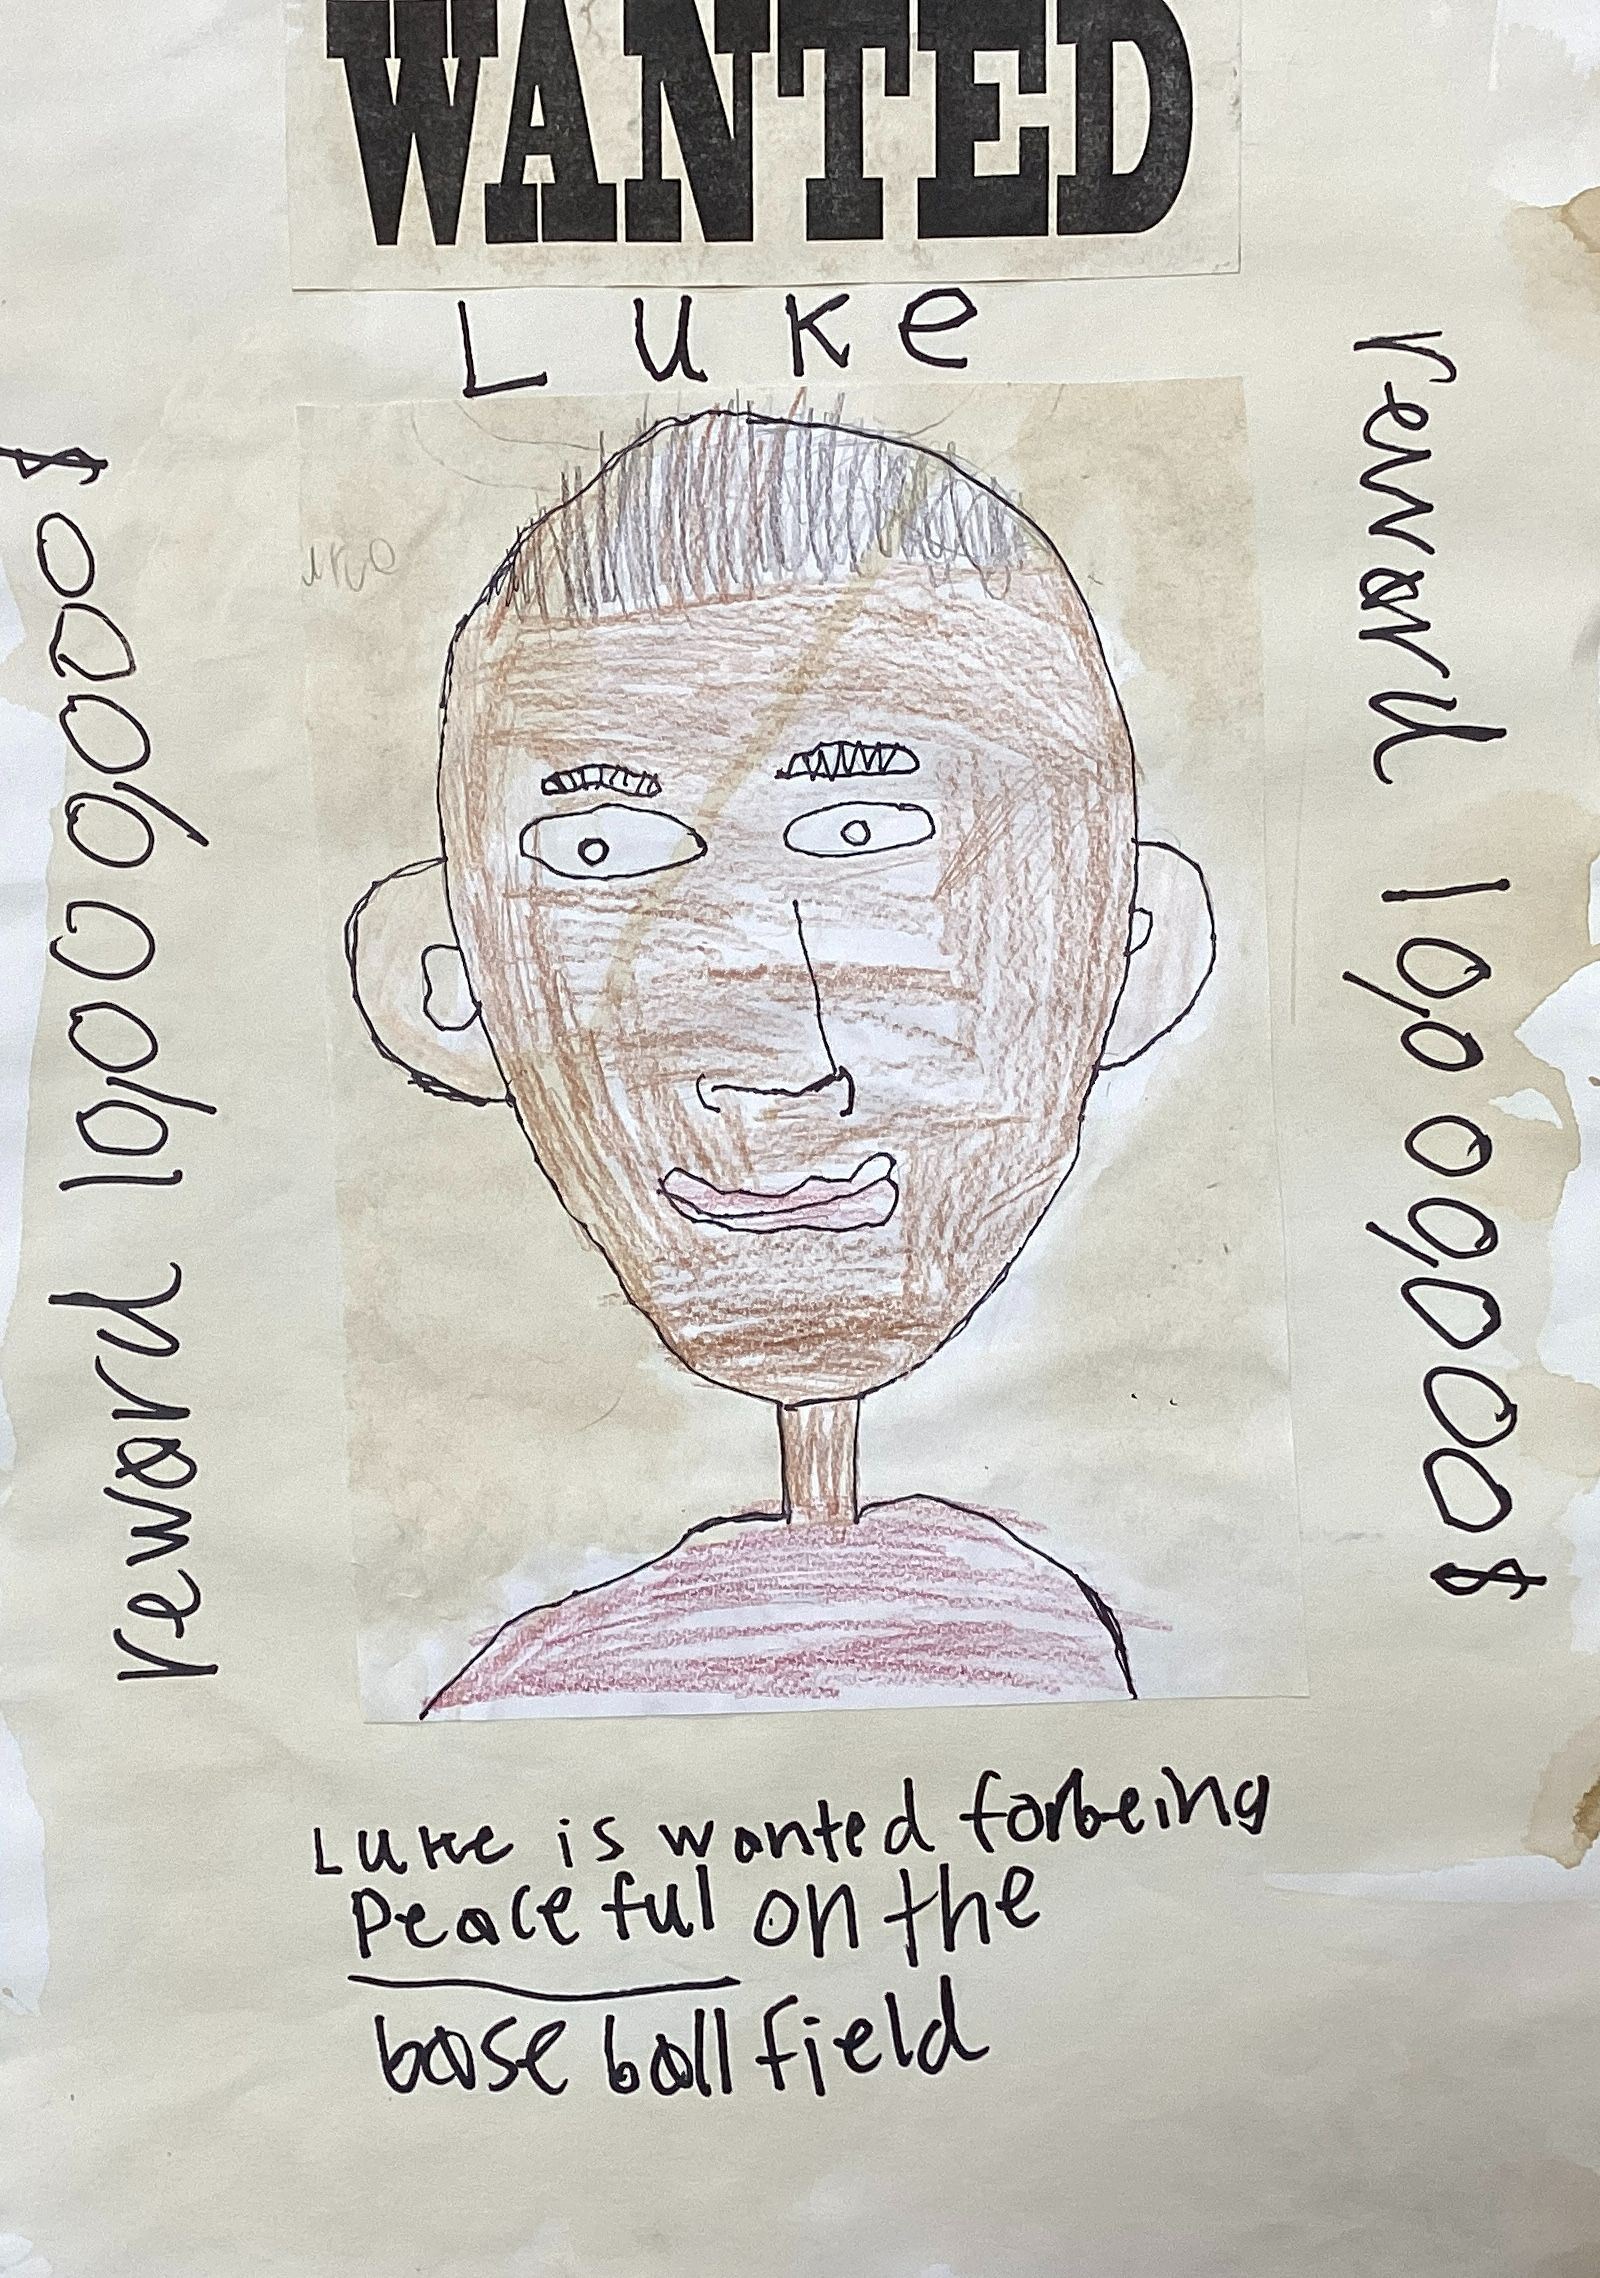 WANTED
Luke
reward 10,000,000$
reward 10,000,000$
Luke is wanted forbeing
Peaceful on the
base ball field